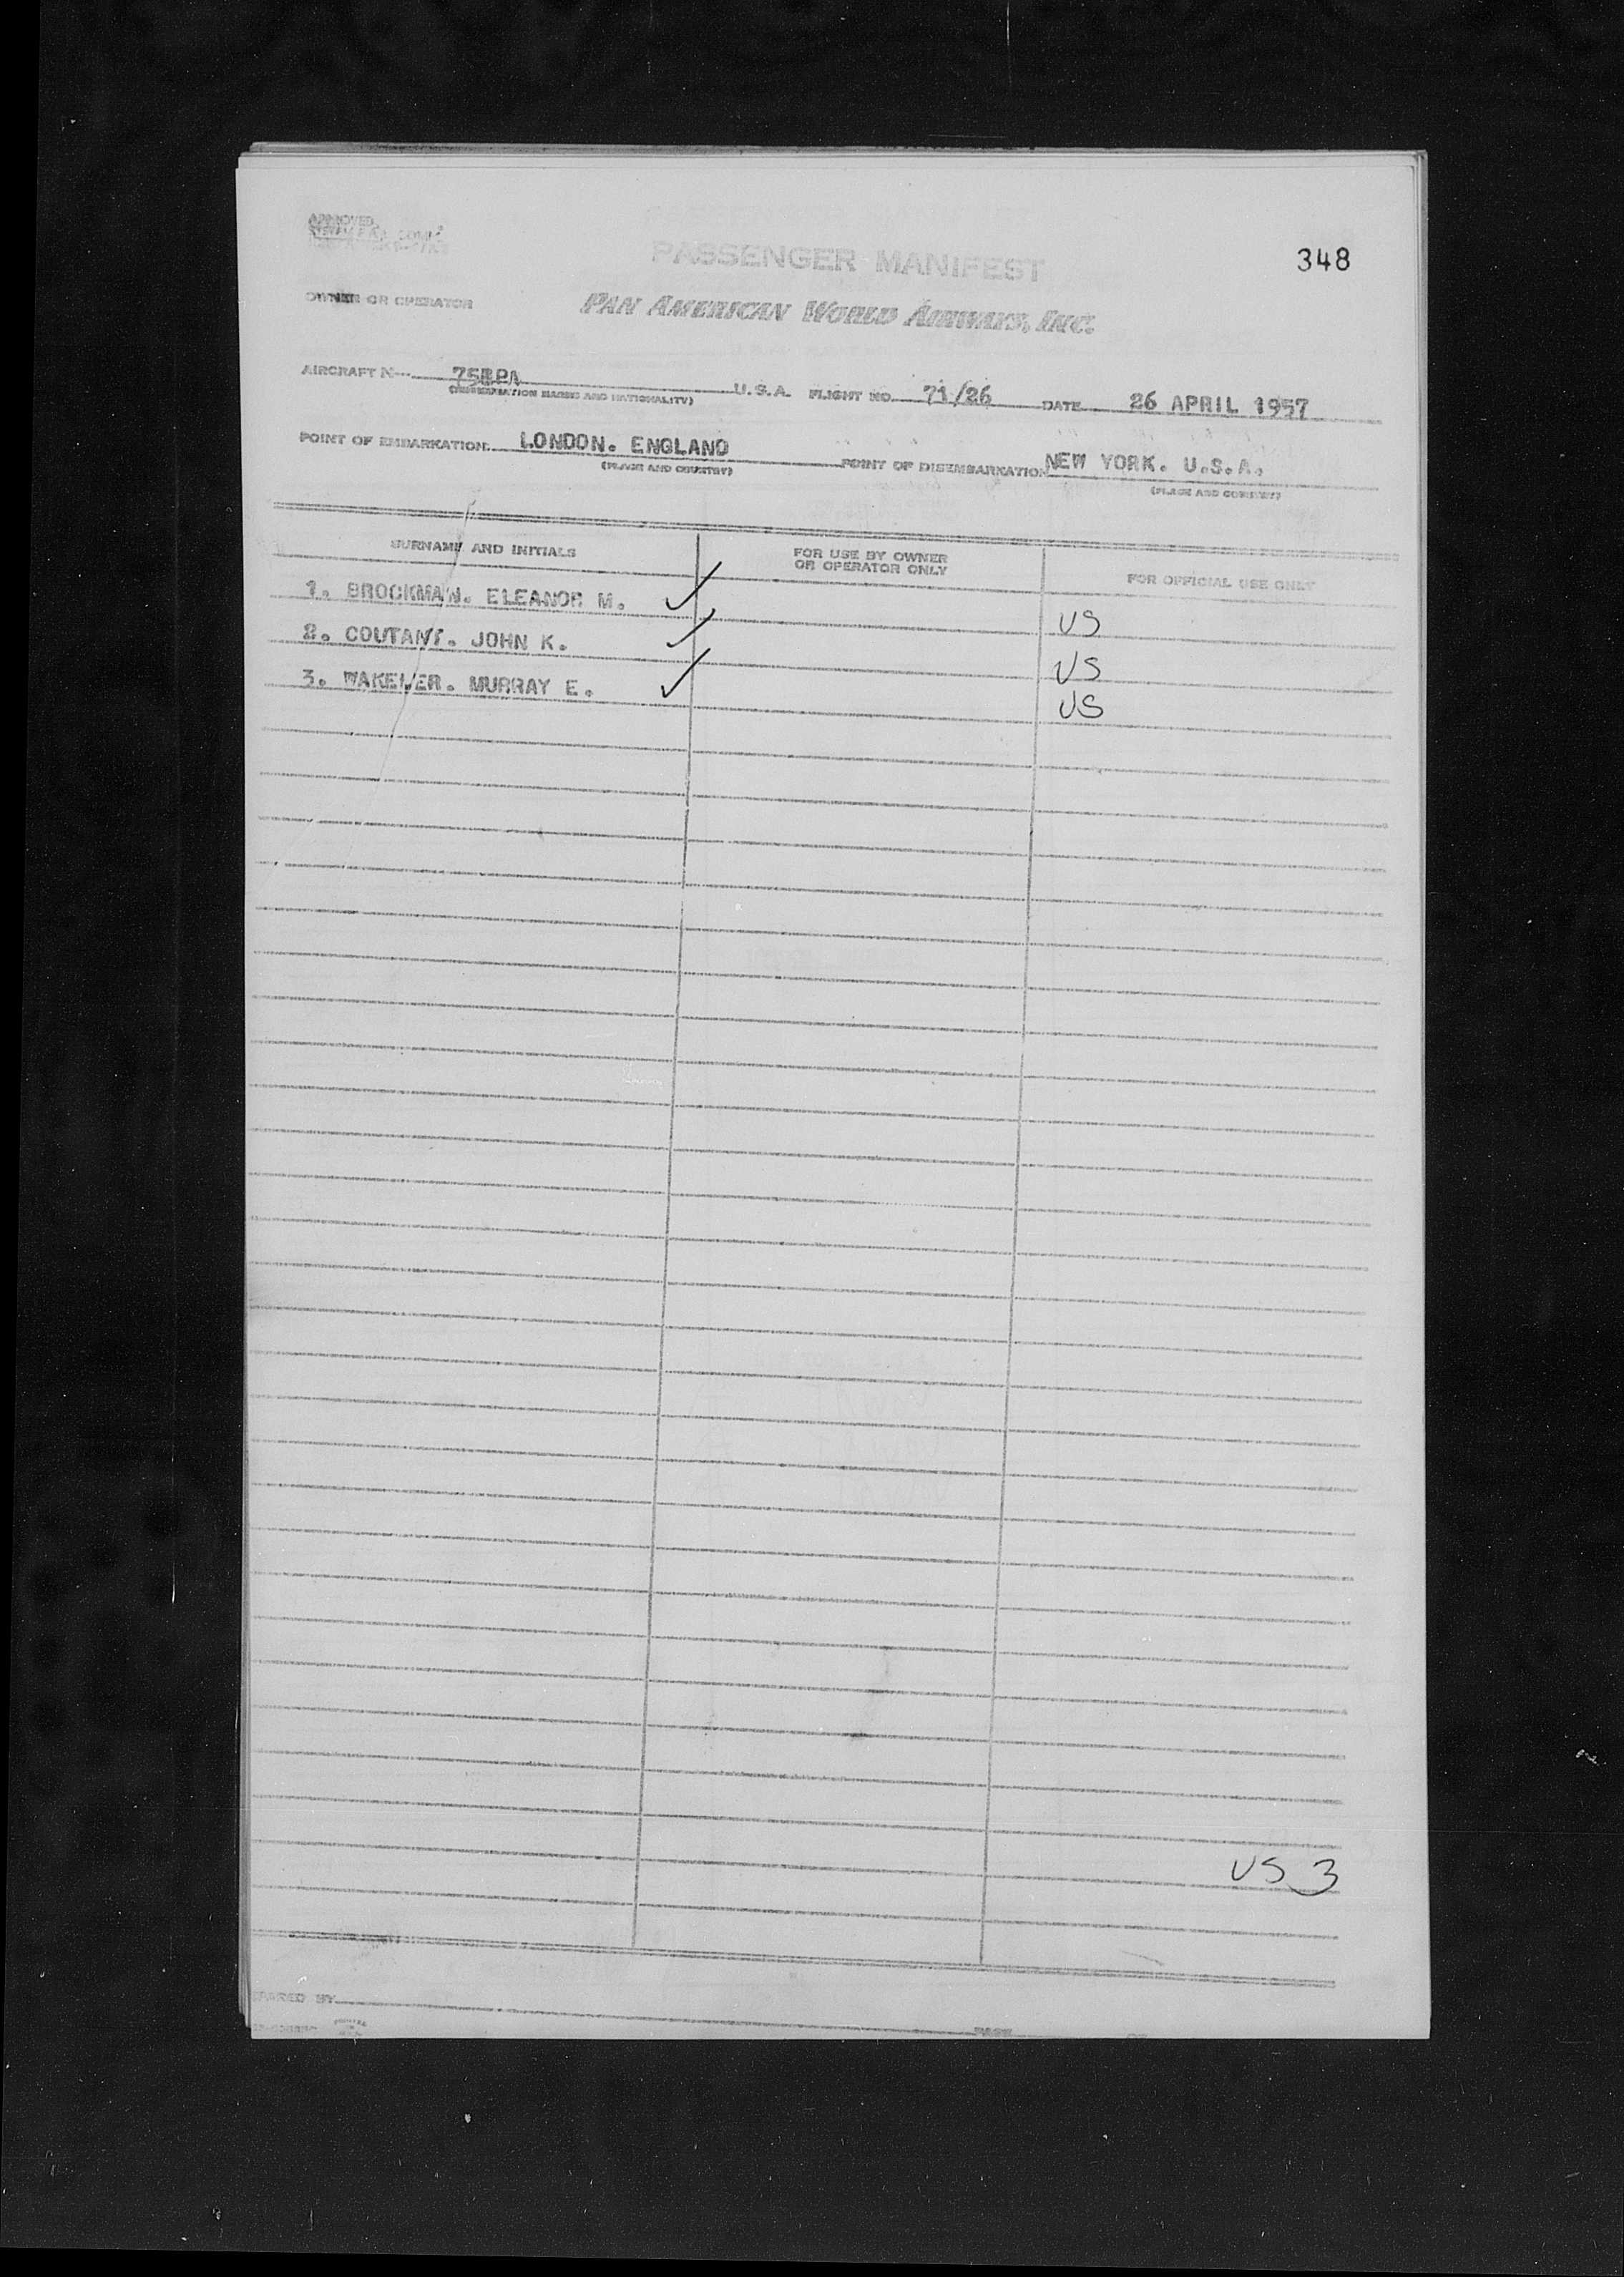 APPROVED
PASSENGER MANIFEST
348
OWNER OR OPERATOR
PAN AMERICAN WORLD AIRWAYS, INC.
AIRCRAFT N U.S.A. FLIGHT NO. 71/26 DATE 26 APRIL 1957
(REGISTRATION MARKS AND NATIONALITY)
POINT OF EMBARKATION LONDON. ENGLAND POINT OF DISEMBARKATION NEW YORK. U.S.A.
(PLACE AND COUNTRY) (PLACE AND COUNTRY)
SURNAME AND INITIALS FOR USE BY OWNER OR OPERATOR ONLY FOR OFFICIAL USE ONLY
1. BROCKMAN. ELEANOR M. ✓ US
2. COUTANT. JOHN K. ✓ US
3. MURRAY E. ✓ US
US 3
PARED BY